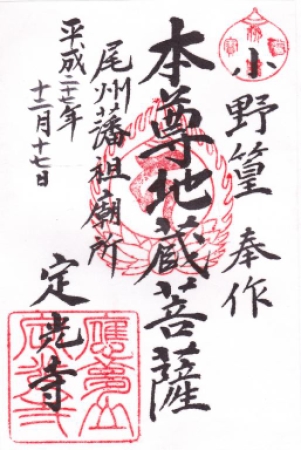 小野篁 奉作
本尊地蔵菩薩
尾州藩祖廟所
平成二十七年
十二月十七日
定光寺
應夢山